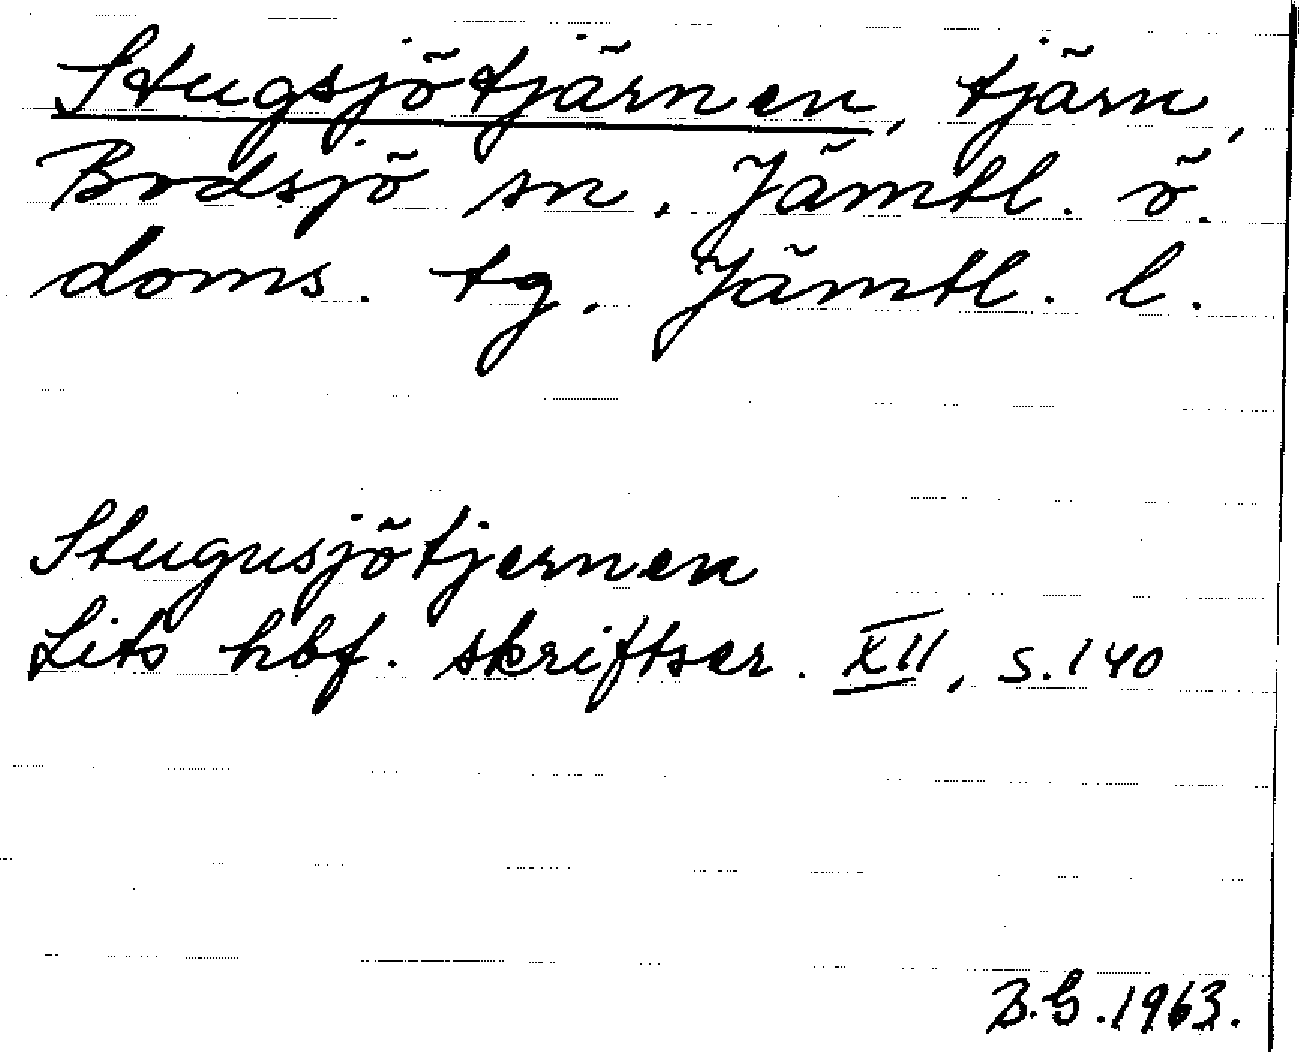 Stugsjötjärnen, tjärn,
Bodsjö sn. Jämtl. ö.
doms. tg. Jämtl. l.
Stugusjötjernen
Lits hbf. skriftser. XII, s. 140
B.G. 1963.